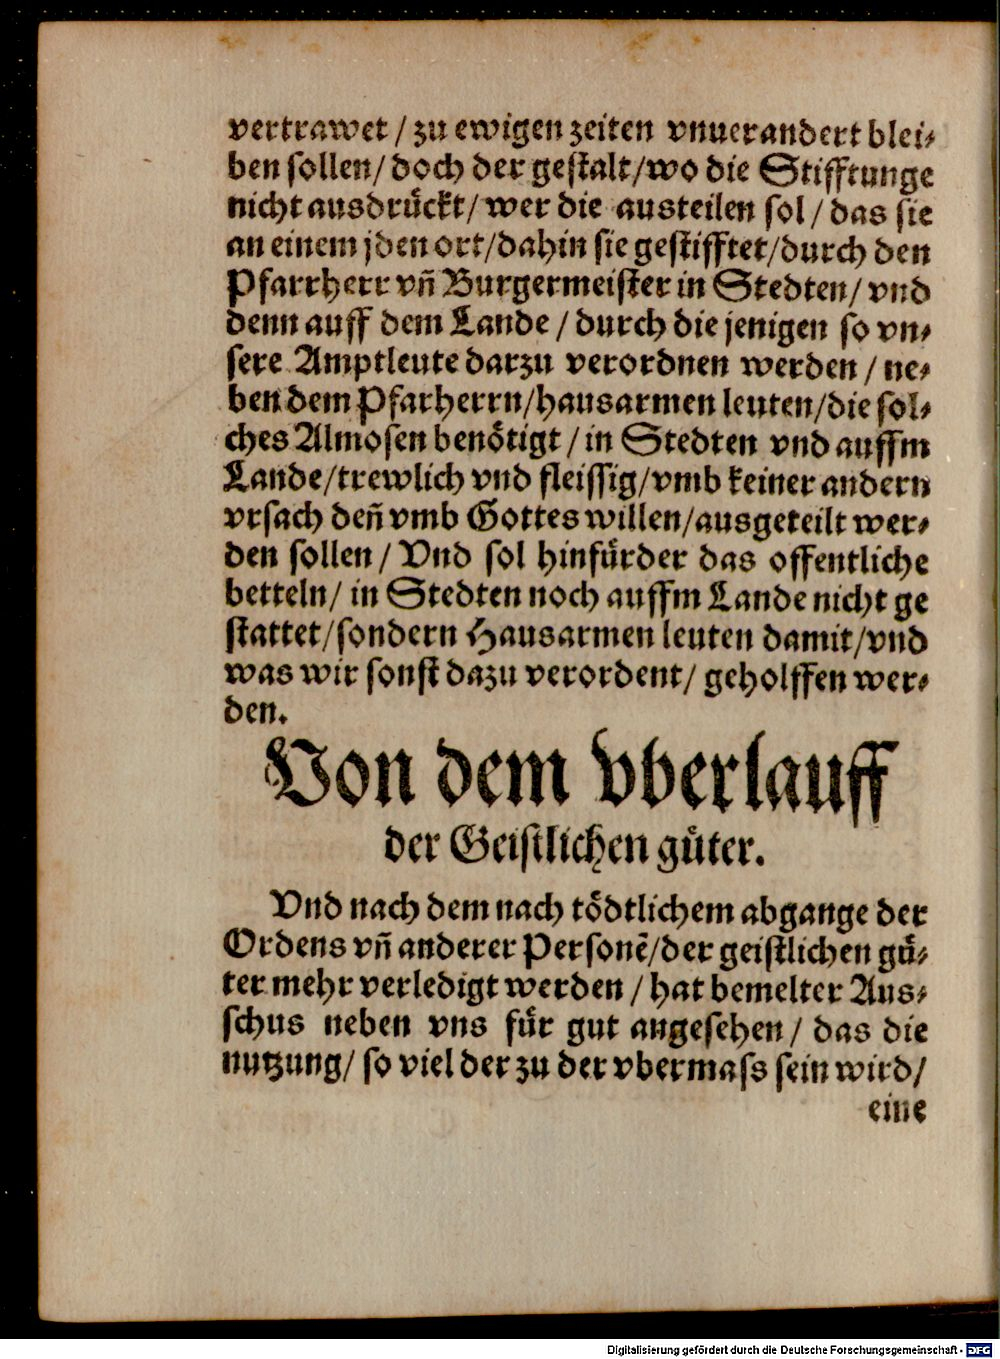 vertrawet / zu ewigen zeiten vnuerandert blei⸗
ben sollen / doch der gestalt / wo die Stifftunge
nicht ausdrůckt / wer die austeilen sol / das sie
an einem jden ort / dahin sie gestifftet / durch den
Pfarrherr vn̄ Burgermeister in Stedten / vnd
denn auff dem Lande / durch die jenigen so vn⸗
sere Amptleute darzu verordnen werden / ne⸗
ben dem Pfarherrn / hausarmen leuten / die sol⸗
ches Almosen benötigt / in Stedten vnd auffm
Lande / trewlich vnd fleissig / vmb keiner andern
vrsach den̄ vmb Gottes willen / ausgeteilt wer⸗
den sollen / Vnd sol hinfůrder das offentliche
betteln / in Stedten noch auffm Lande nicht ge
stattet / sondern Hausarmen leuten damit / vnd
was wir sonst dazu verordent / geholffen wer⸗
den.
Von dem vberlauff
der Geistlichen gůter.
Vnd nach dem nach tödtlichem abgange der
Ordens vn̄ anderer Personē / der geistlichen gů⸗
ter mehr verledigt werden / hat bemelter Aus⸗
schus neben vns fůr gut angesehen / das die
nutzung / so viel der zu der vbermass sein wird /
eine
Digitalisierung gefördert durch die Deutsche Forschungsgemeinschaft - DFG